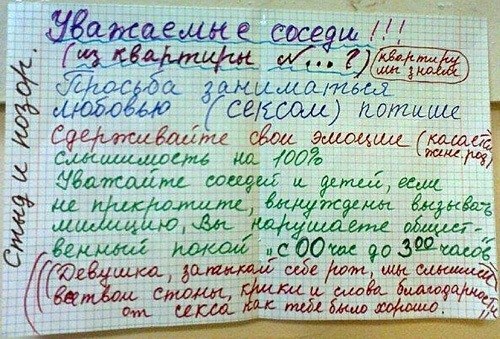 Уважаемые соседи!!!
(из квартиры №...?)
(квартиру мы знаем)
Просьба заниматься
любовью (сексом) потише
Сдерживайте свои эмоции (касается женс. род)
слышимость на 100%
Уважайте соседей и детей, если
не прекратите, вынуждены вызывать
милицию, Вы нарушаете общест-
венный покой "с 00 час до 3 00 часов"
((Девушка, затыкай себе рот, мы слышим
все твои стоны, крики и слова благодарности
от секса как тебе было хорошо.))
Стыд и позор.